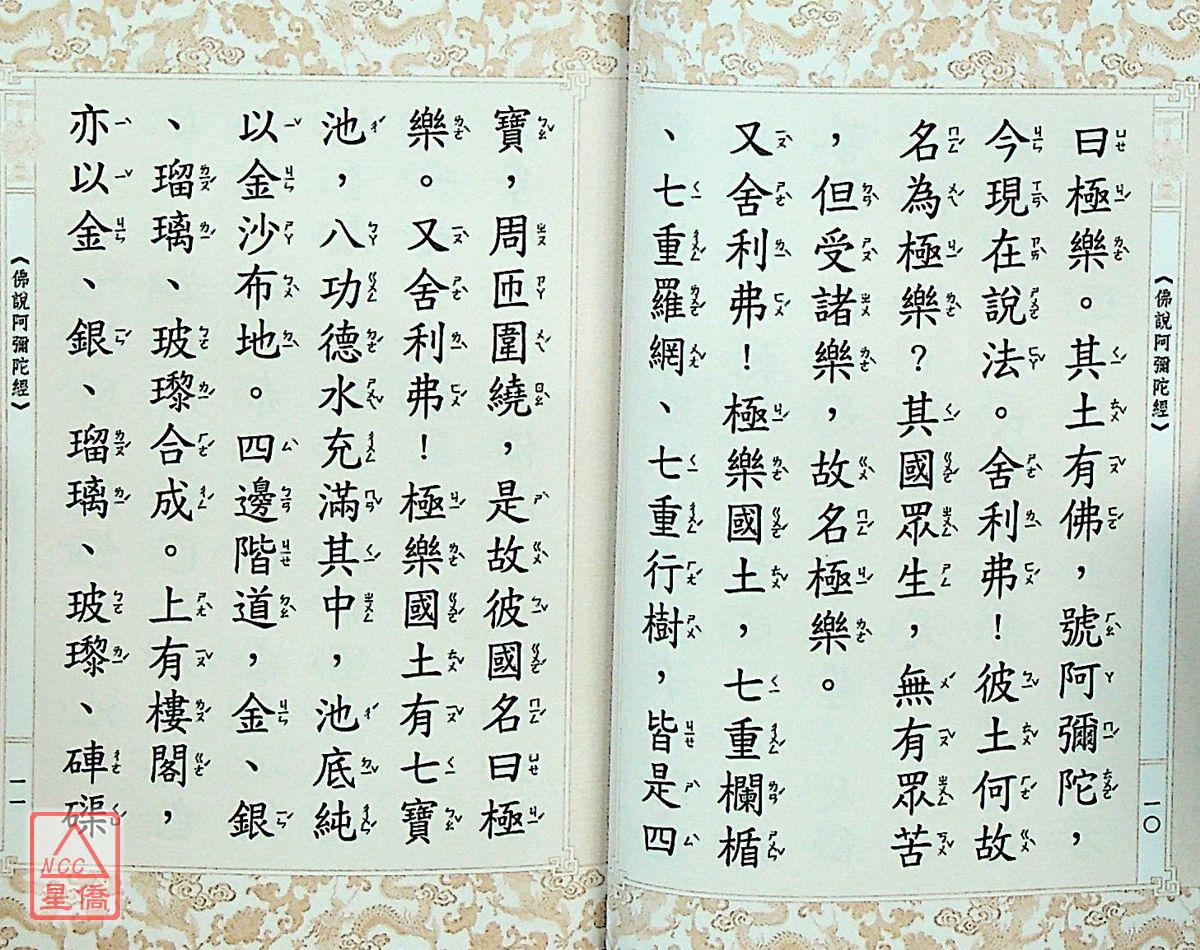 《佛說阿彌陀經》
一〇
曰極樂。其土有佛，號阿彌陀，
今現在說法。舍利弗！彼土何故
名為極樂？其國眾生，無有眾苦
，但受諸樂，故名極樂。
又舍利弗！極樂國土，七重欄楯
、七重羅網、七重行樹，皆是四
寶，周匝圍繞，是故彼國名曰極
樂。又舍利弗！極樂國土有七寶
池，八功德水充滿其中，池底純
以金沙布地。四邊階道，金、銀
、瑠璃、玻瓈合成。上有樓閣，
亦以金、銀、瑠璃、玻瓈、硨磲
《佛說阿彌陀經》
一一
NCC
星僑